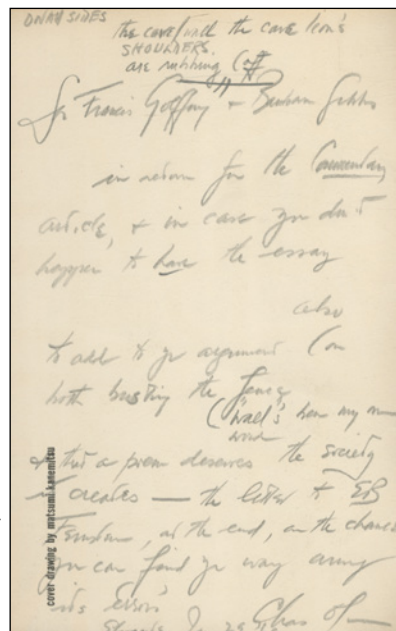 ON SIDES
the cave/wall the cave lion's
SHOULDERS.
are rubbing (off
for Francis Gaffney + Barbara
in return for the Commentary
article, + in case you don't
happen to have the essay
also
to add to yr argument (on
both busting the fence
("wall"'s been my own
word
+ that a poem deserves the society
it creates — the letter to EB
Feinstein, at the end, on the chance
you can find yr way among
its errors
Chas Ol
cover drawing by matsumi kanemitsu